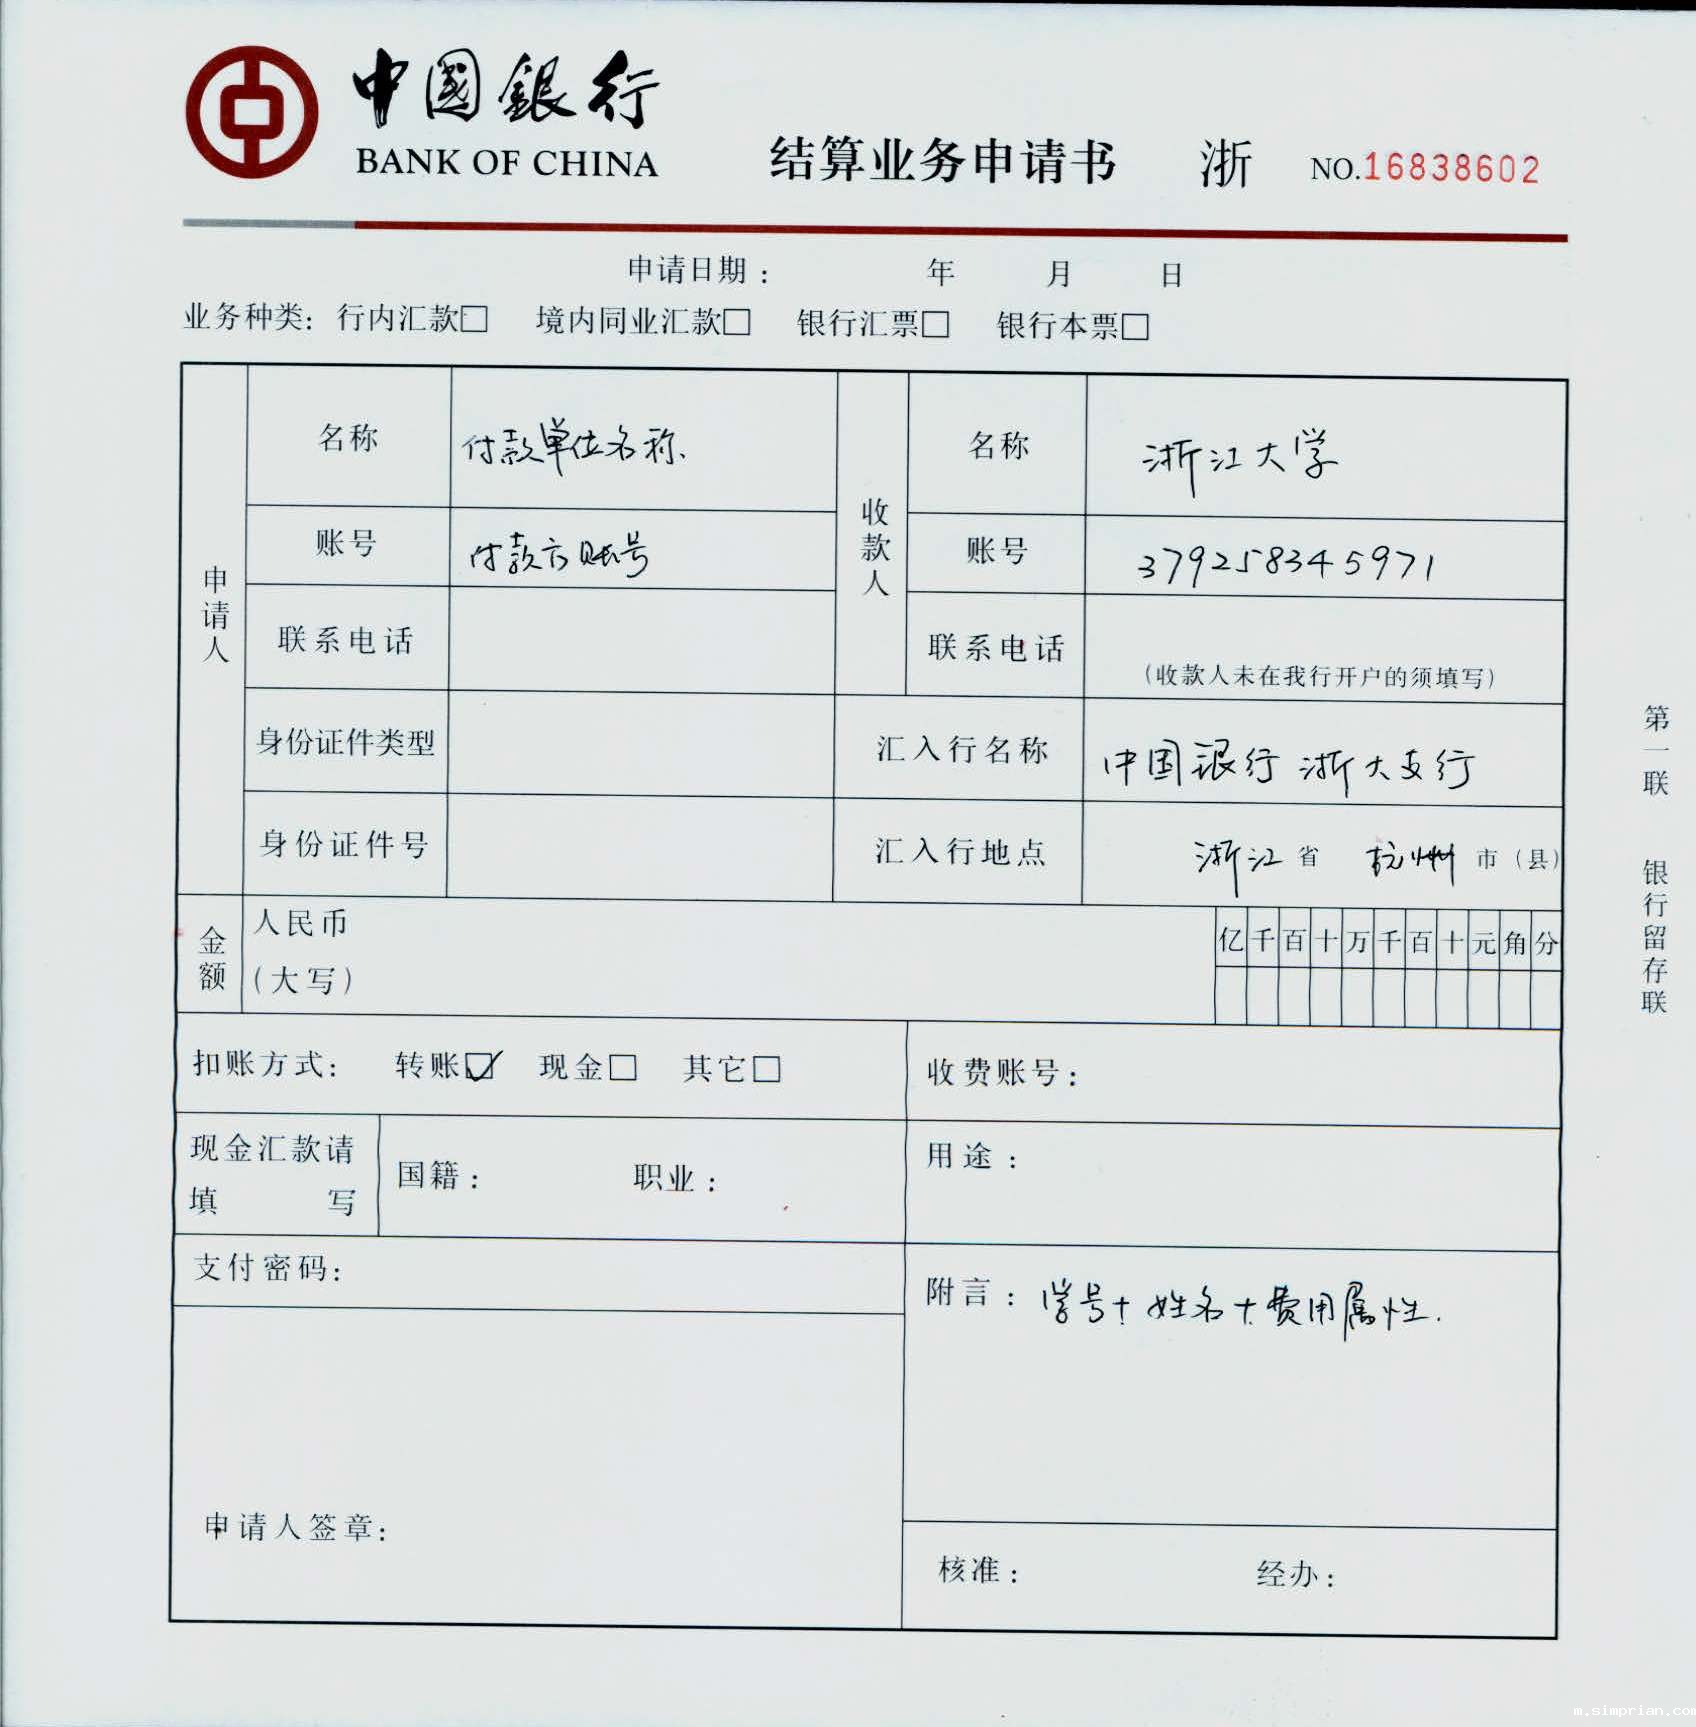 中國銀行
BANK OF CHINA
结算业务申请书 浙 NO.16838602
申请日期： 年 月 日
业务种类：行内汇款□ 境内同业汇款□ 银行汇票□ 银行本票□
申请人
名称 付款单位名称.
账号 付款方账号
联系电话
身份证件类型
身份证件号
收款人
名称 浙江大学
账号 379258345971
联系电话 （收款人未在我行开户的须填写）
汇入行名称 中国银行浙大支行
汇入行地点 浙江省 杭州市（县）
金额 人民币（大写）
亿千百十万千百十元角分
扣账方式： 转账☑ 现金□ 其它□
收费账号：
现金汇款请填写 国籍： 职业：
用途：
支付密码：
附言：学号+姓名+费用属性.
申请人签章：
核准： 经办：
第一联 银行留存联
m.simprian.com